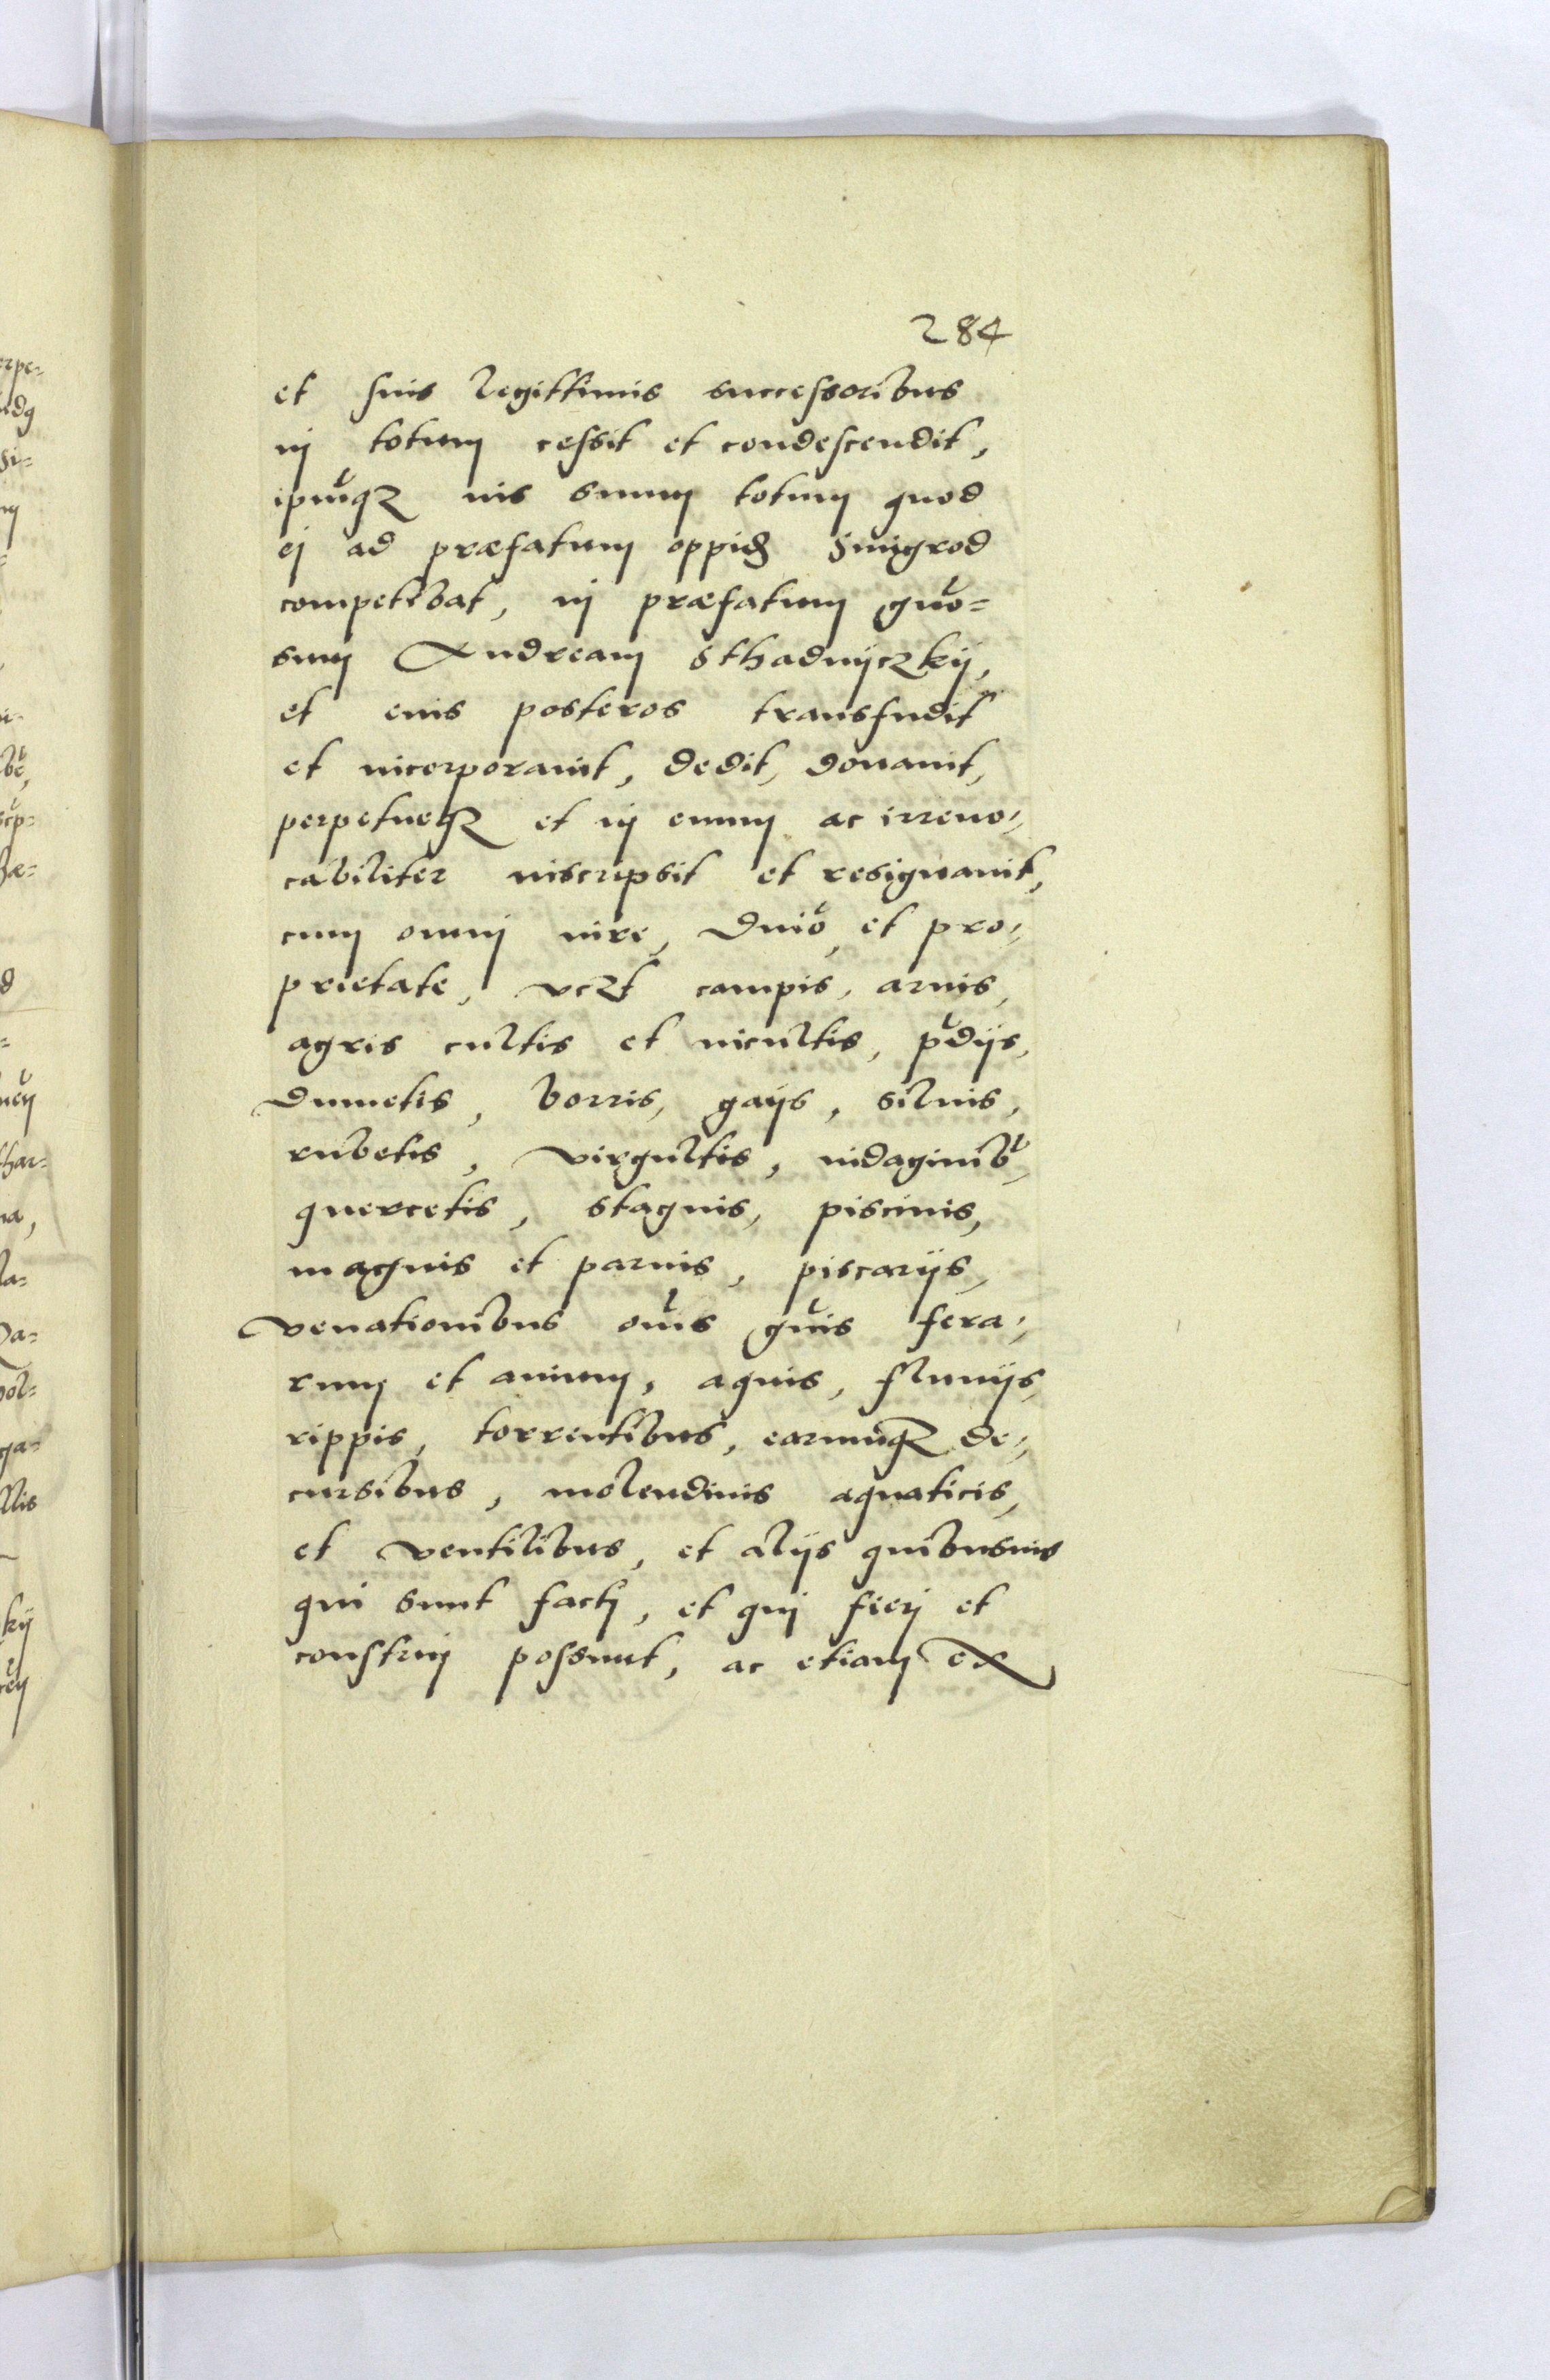 284
et suis legittimis successoribus
in totum cessit et condescendit,
ipmq́z ius suum totum quod
ej ad præfatum oppid Smigrod
competebat, in præfatum gńo=
sum Andream Sthadnyczky,
et eius posteros transfudit
et incorporauit, dedit, donauit,
perpetueqz et in euum ac irreuo=
cabiliter inscripsit et resignauit,
cum omnj iure, dnio, et pro=
prietate, vczt campis, aruis,
agris cultis et incultis, pdijs,
dumetis, borris, gaijs, siluis,
rubetis, virgultis, indaginib,
quercetis, stagnis, piscinis,
magnis et paruis, piscarijs,
venationibus oms gnis fera=
rum et auium, aquis, fluuijs,
rippis, torrentibus, earumqz de=
cursibus, molendinis aquaticis,
et ventilibus, et alijs quibusuis
qui sunt factj, et quj fierj et
construj possunt, ac etiam ex